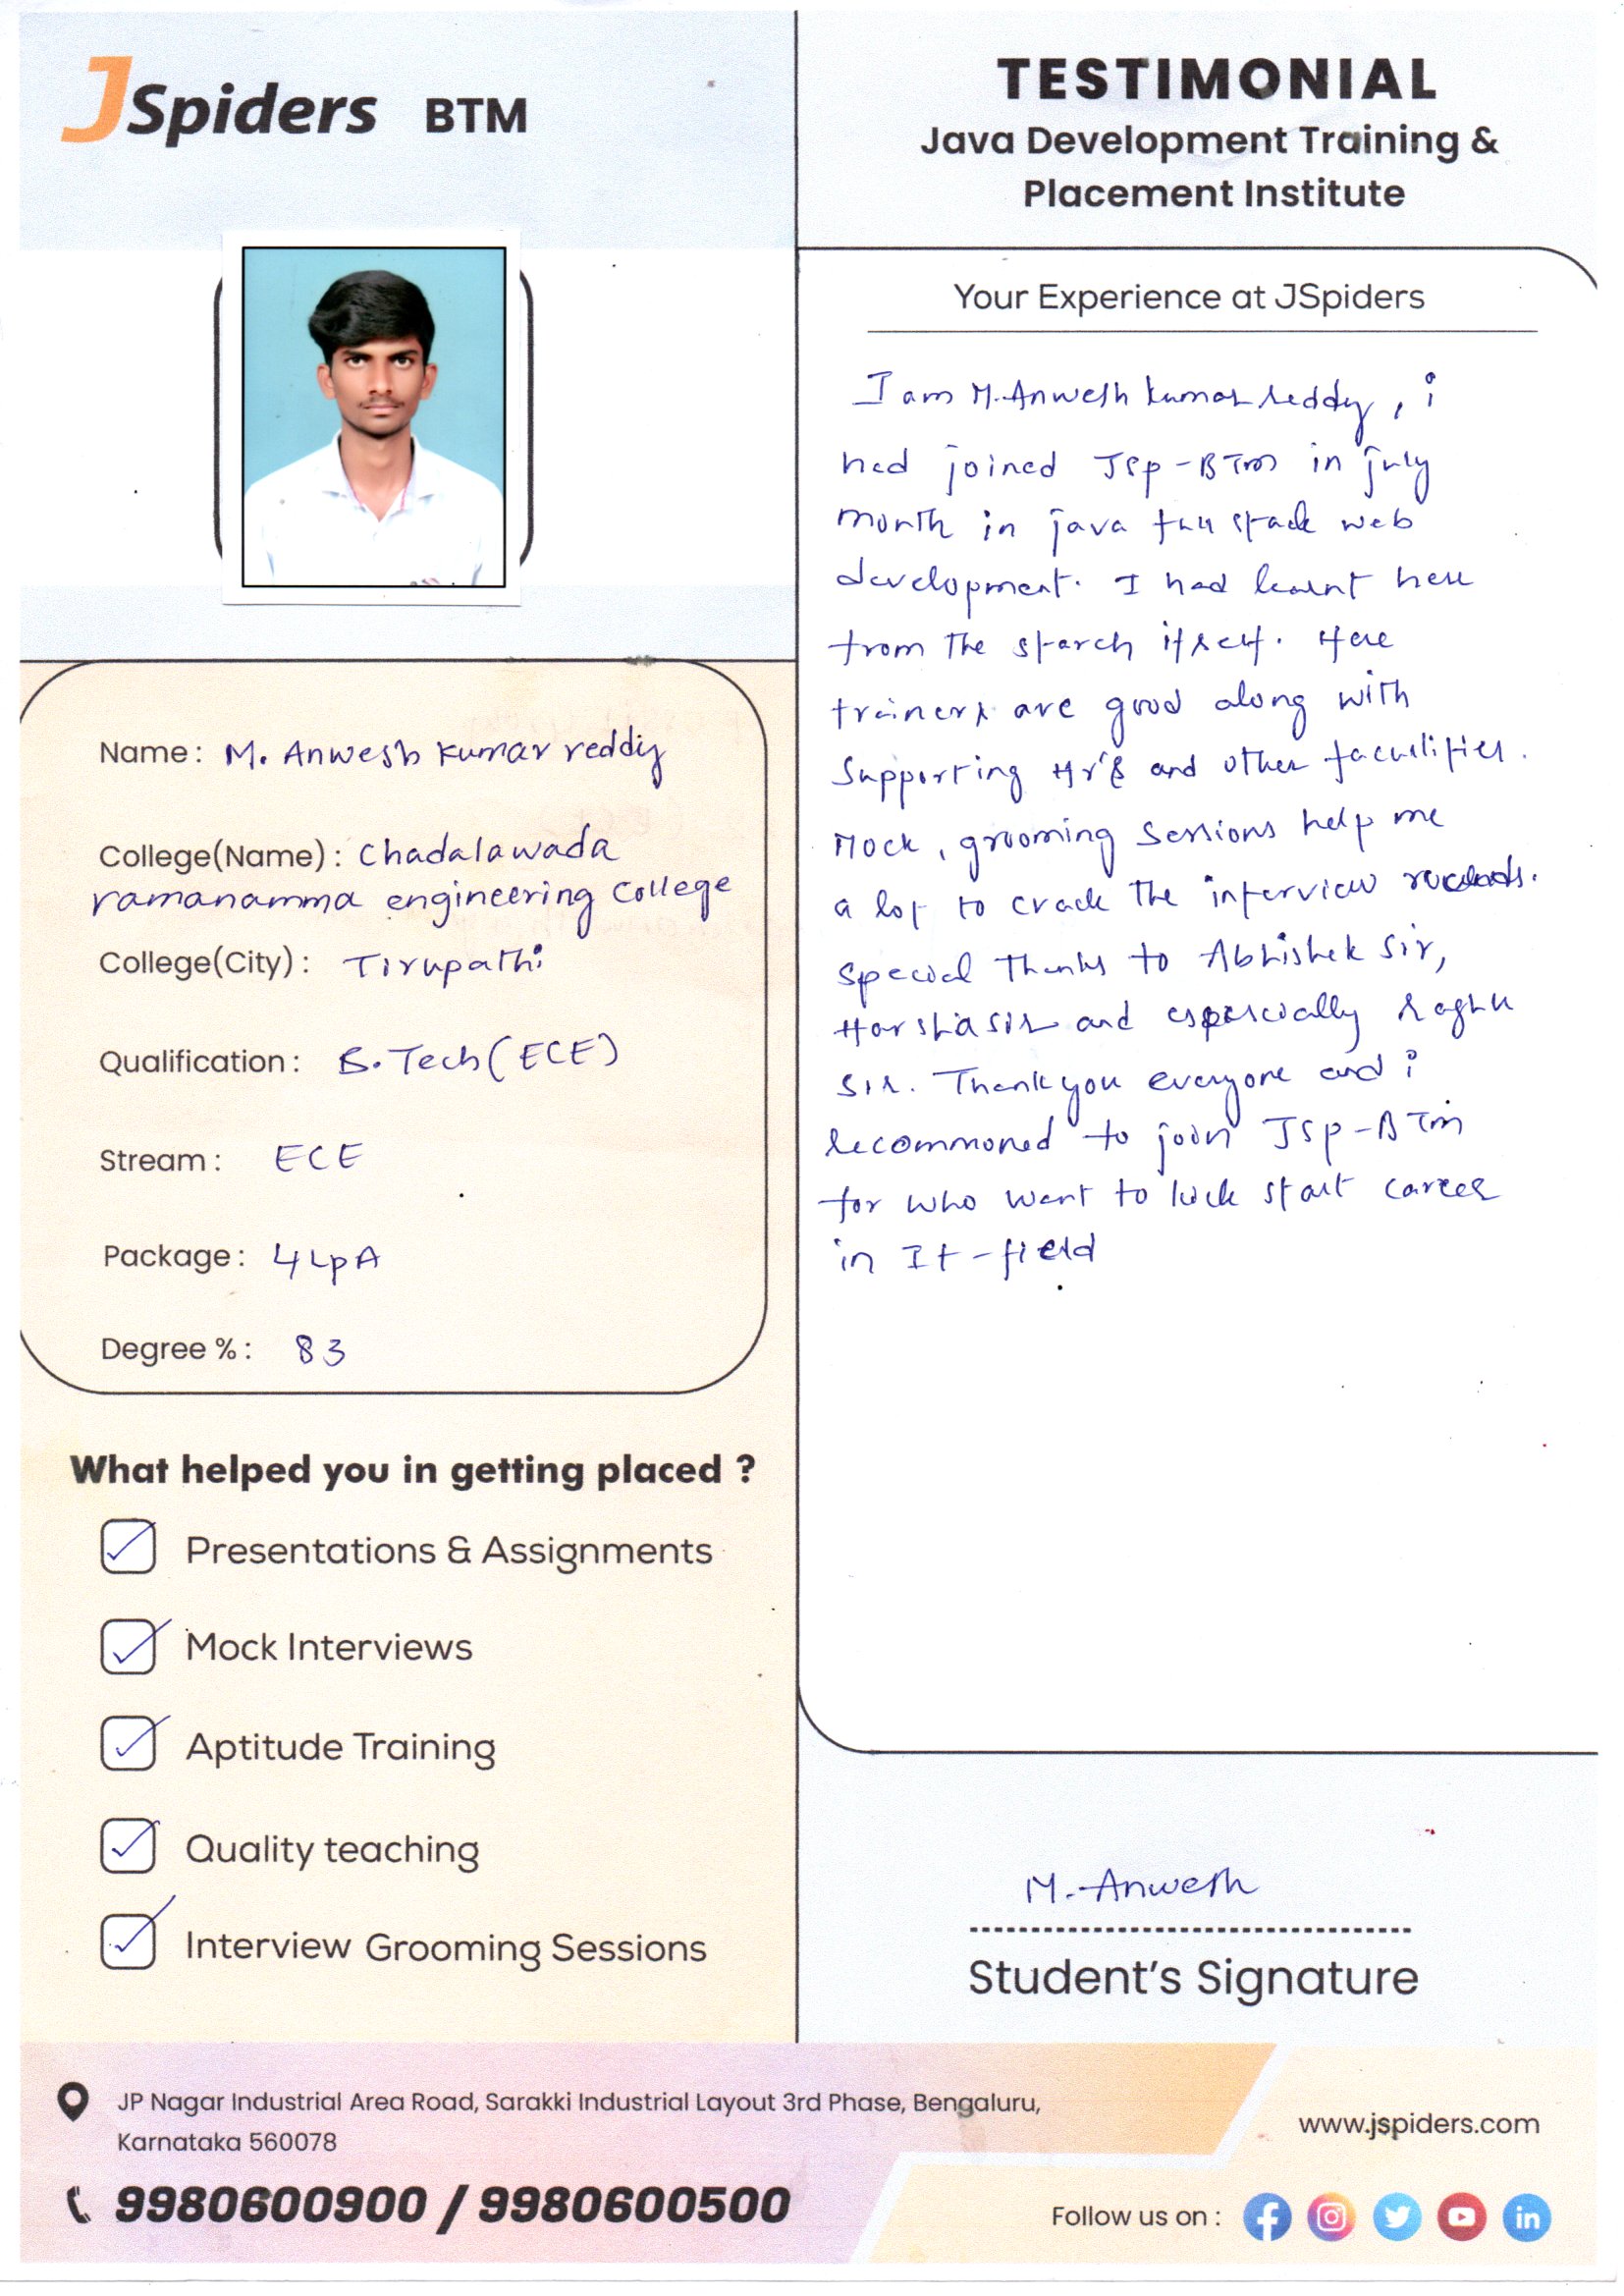 JSpiders BTM
TESTIMONIAL
Java Development Training &
Placement Institute
Name: M. Anwesh kumar reddy
College(Name): Chadalawada
ramanamma engineering College
College(City): Tirupathi
Qualification: B.Tech (ECE)
Stream: ECE
Package: 4 LpA
Degree %: 83
What helped you in getting placed ?
Presentations & Assignments
Mock Interviews
Aptitude Training
Quality teaching
Interview Grooming Sessions
Your Experience at JSpiders
I am M.Anwesh kumar reddy, i
had joined JSp-BTm in july
month in java full stack web
development. I had learnt here
from the starch itself. Here
trainers are good along with
Supporting Hr's and other faculities.
Mock, grooming Sessions help me
a lot to crack the interview
special Thanks to Abhishek Sir,
Harsha sir and especially raghu
sir. Thank you everyone and i
recommoned to join JSp-BTm
for who want to kick start career
in It-field
M.Anwesh
Student's Signature
JP Nagar Industrial Area Road, Sarakki Industrial Layout 3rd Phase, Bengaluru,
Karnataka 560078
9980600900 / 9980600500
www.jspiders.com
Follow us on :